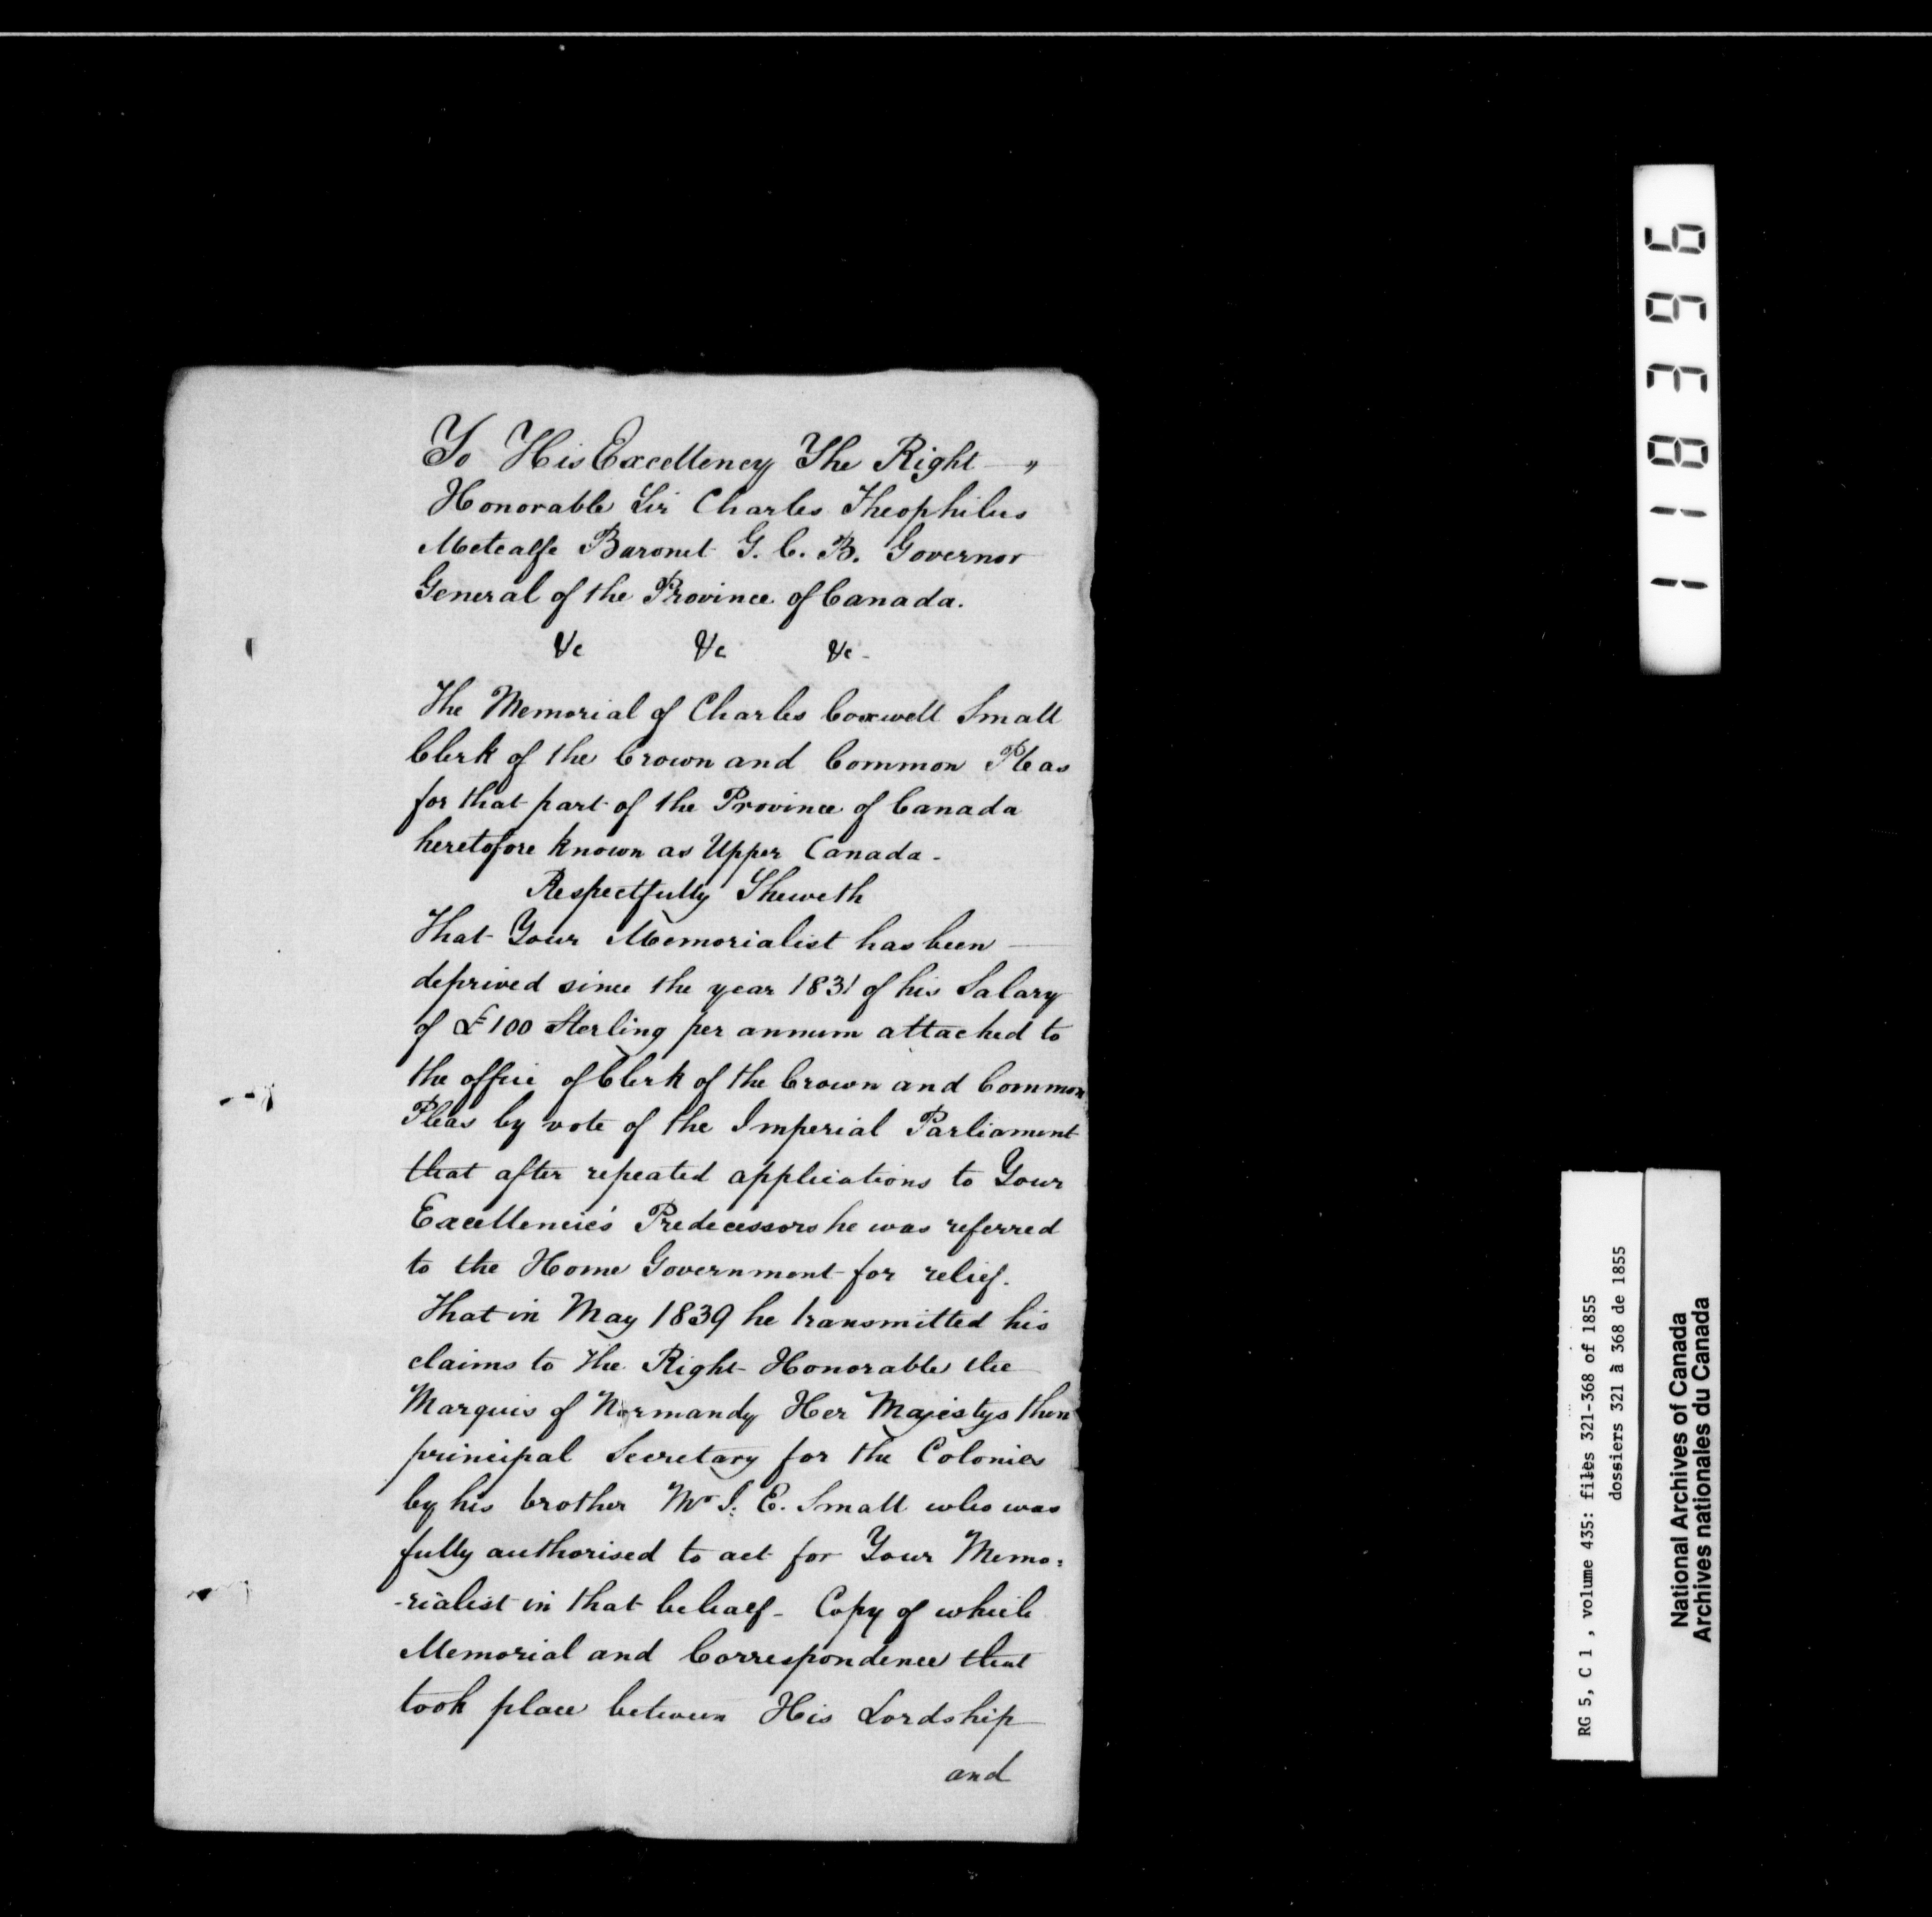 To His Excellency The Right — "
Honorable Sir Charles Theophilus
Metcalfe Baronet G. C. B. Governor
General of the Province of Canada.
&c &c &c -
The Memorial of Charles Coxwell Small
Clerk of the Crown and Common Pleas
for that part of the Province of Canada
heretofore known as Upper Canada -
Respectfully Sheweth
That Your Memorialist has been —
deprived since the year 1831 of his Salary
of £100 Sterling per annum attached to
the office of Clerk of the Crown and Common
Pleas by vote of the Imperial Parliament
that after repeated applications to Your
Excellencie's Predecessors he was referred
to the Home Government for relief.
That in May 1839 he transmitted his
claims to The Right Honorable the
Marquis of Normandy Her Majestys then
principal Secretary for the Colonies
by his brother Mr J. E. Small who was
fully authorised to act for Your Memo=
-rialist in that behalf - Copy of which
Memorial and Correspondence that
took place between His Lordship
and
118396
RG 5, C 1 , volume 435: files 321-368 of 1855
dossiers 321 à 368 de 1855
National Archives of Canada
Archives nationales du Canada